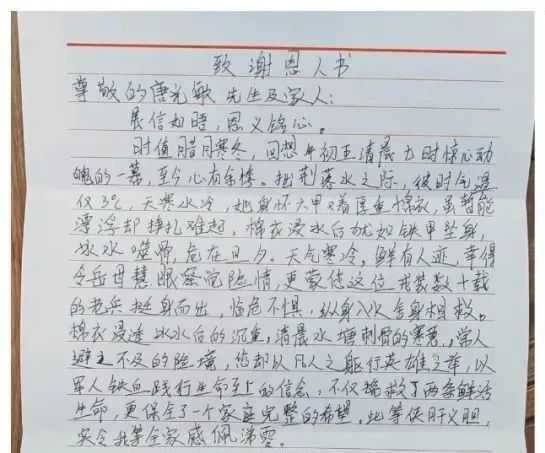 致谢恩人书
尊敬的唐光敏先生及家人:
展信如晤,恩义铭心。
时值腊月寒冬,回想年初五清晨七时惊心动
魄的一幕,至今心有余悸。拙荆落水之际,彼时气温
仅3℃,天寒水冷,她身怀六甲又着厚重棉衣,虽暂能
漂浮却挣扎难起,棉衣浸水后犹如铁甲坠身,
冰水噬骨,危在旦夕。天气寒冷,鲜有人迹,幸得
令岳母慧眼察觉险情,更蒙您这位戎装数十载
的老兵挺身而出,临危不惧,纵身入水舍身相救。
棉衣浸透冰水后的沉重,清晨水塘刺骨的寒意,常人
避之不及的险境,您却以凡人之躯行英雄之举,以
军人铁血践行生命至上的信念,不仅拯救了两条鲜活
生命,更保全了一个家庭完整的希望。此等侠肝义胆,
实令我等全家感佩涕零。